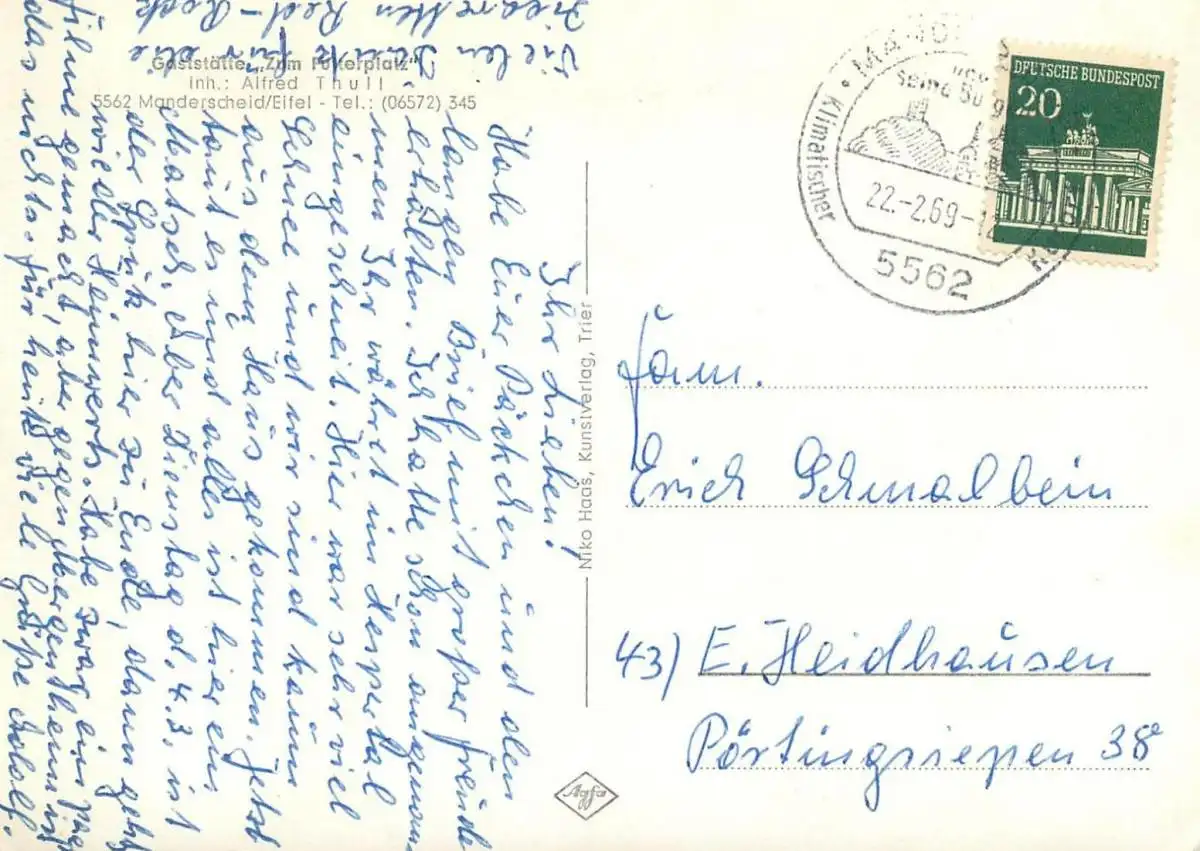 Gaststätte „Zum Pütterplatz"
Inh.: Alfred Thull
5562 Manderscheid/Eifel - Tel.: (06572) 345
Ihr Lieben!
Habe Euer Päckchen und den
langen Brief mit großer Freude
erhalten. Ich hatte schon angenom
men Ihr währet im Hespertal
eingeschneit. Hier war sehr viel
Schnee und wir sind kaum
aus dem Haus gekommen. Jetzt
taut es und alles ist hier ein
Matsch. Aber Dienstag d. 4.3. ist
der Spuk hier zu Ende, dann geht
wieder Heimwerts. Habe zwar ein paar
Filme gemacht, aber gegen Mergentheim ist
das nichts. Für heute viele Grüße Adolf.
Vielen Dank für die
Zigaretten Red-Rock
Niko Haas, Kunstverlag, Trier
Agfa
und seine Burgen
Klimatischer
22.-2.69-12
5562
DEUTSCHE BUNDESPOST
20
Fam.
Erich Schmalbein
43) E. Heidhausen
Pörtingsiepen 38e